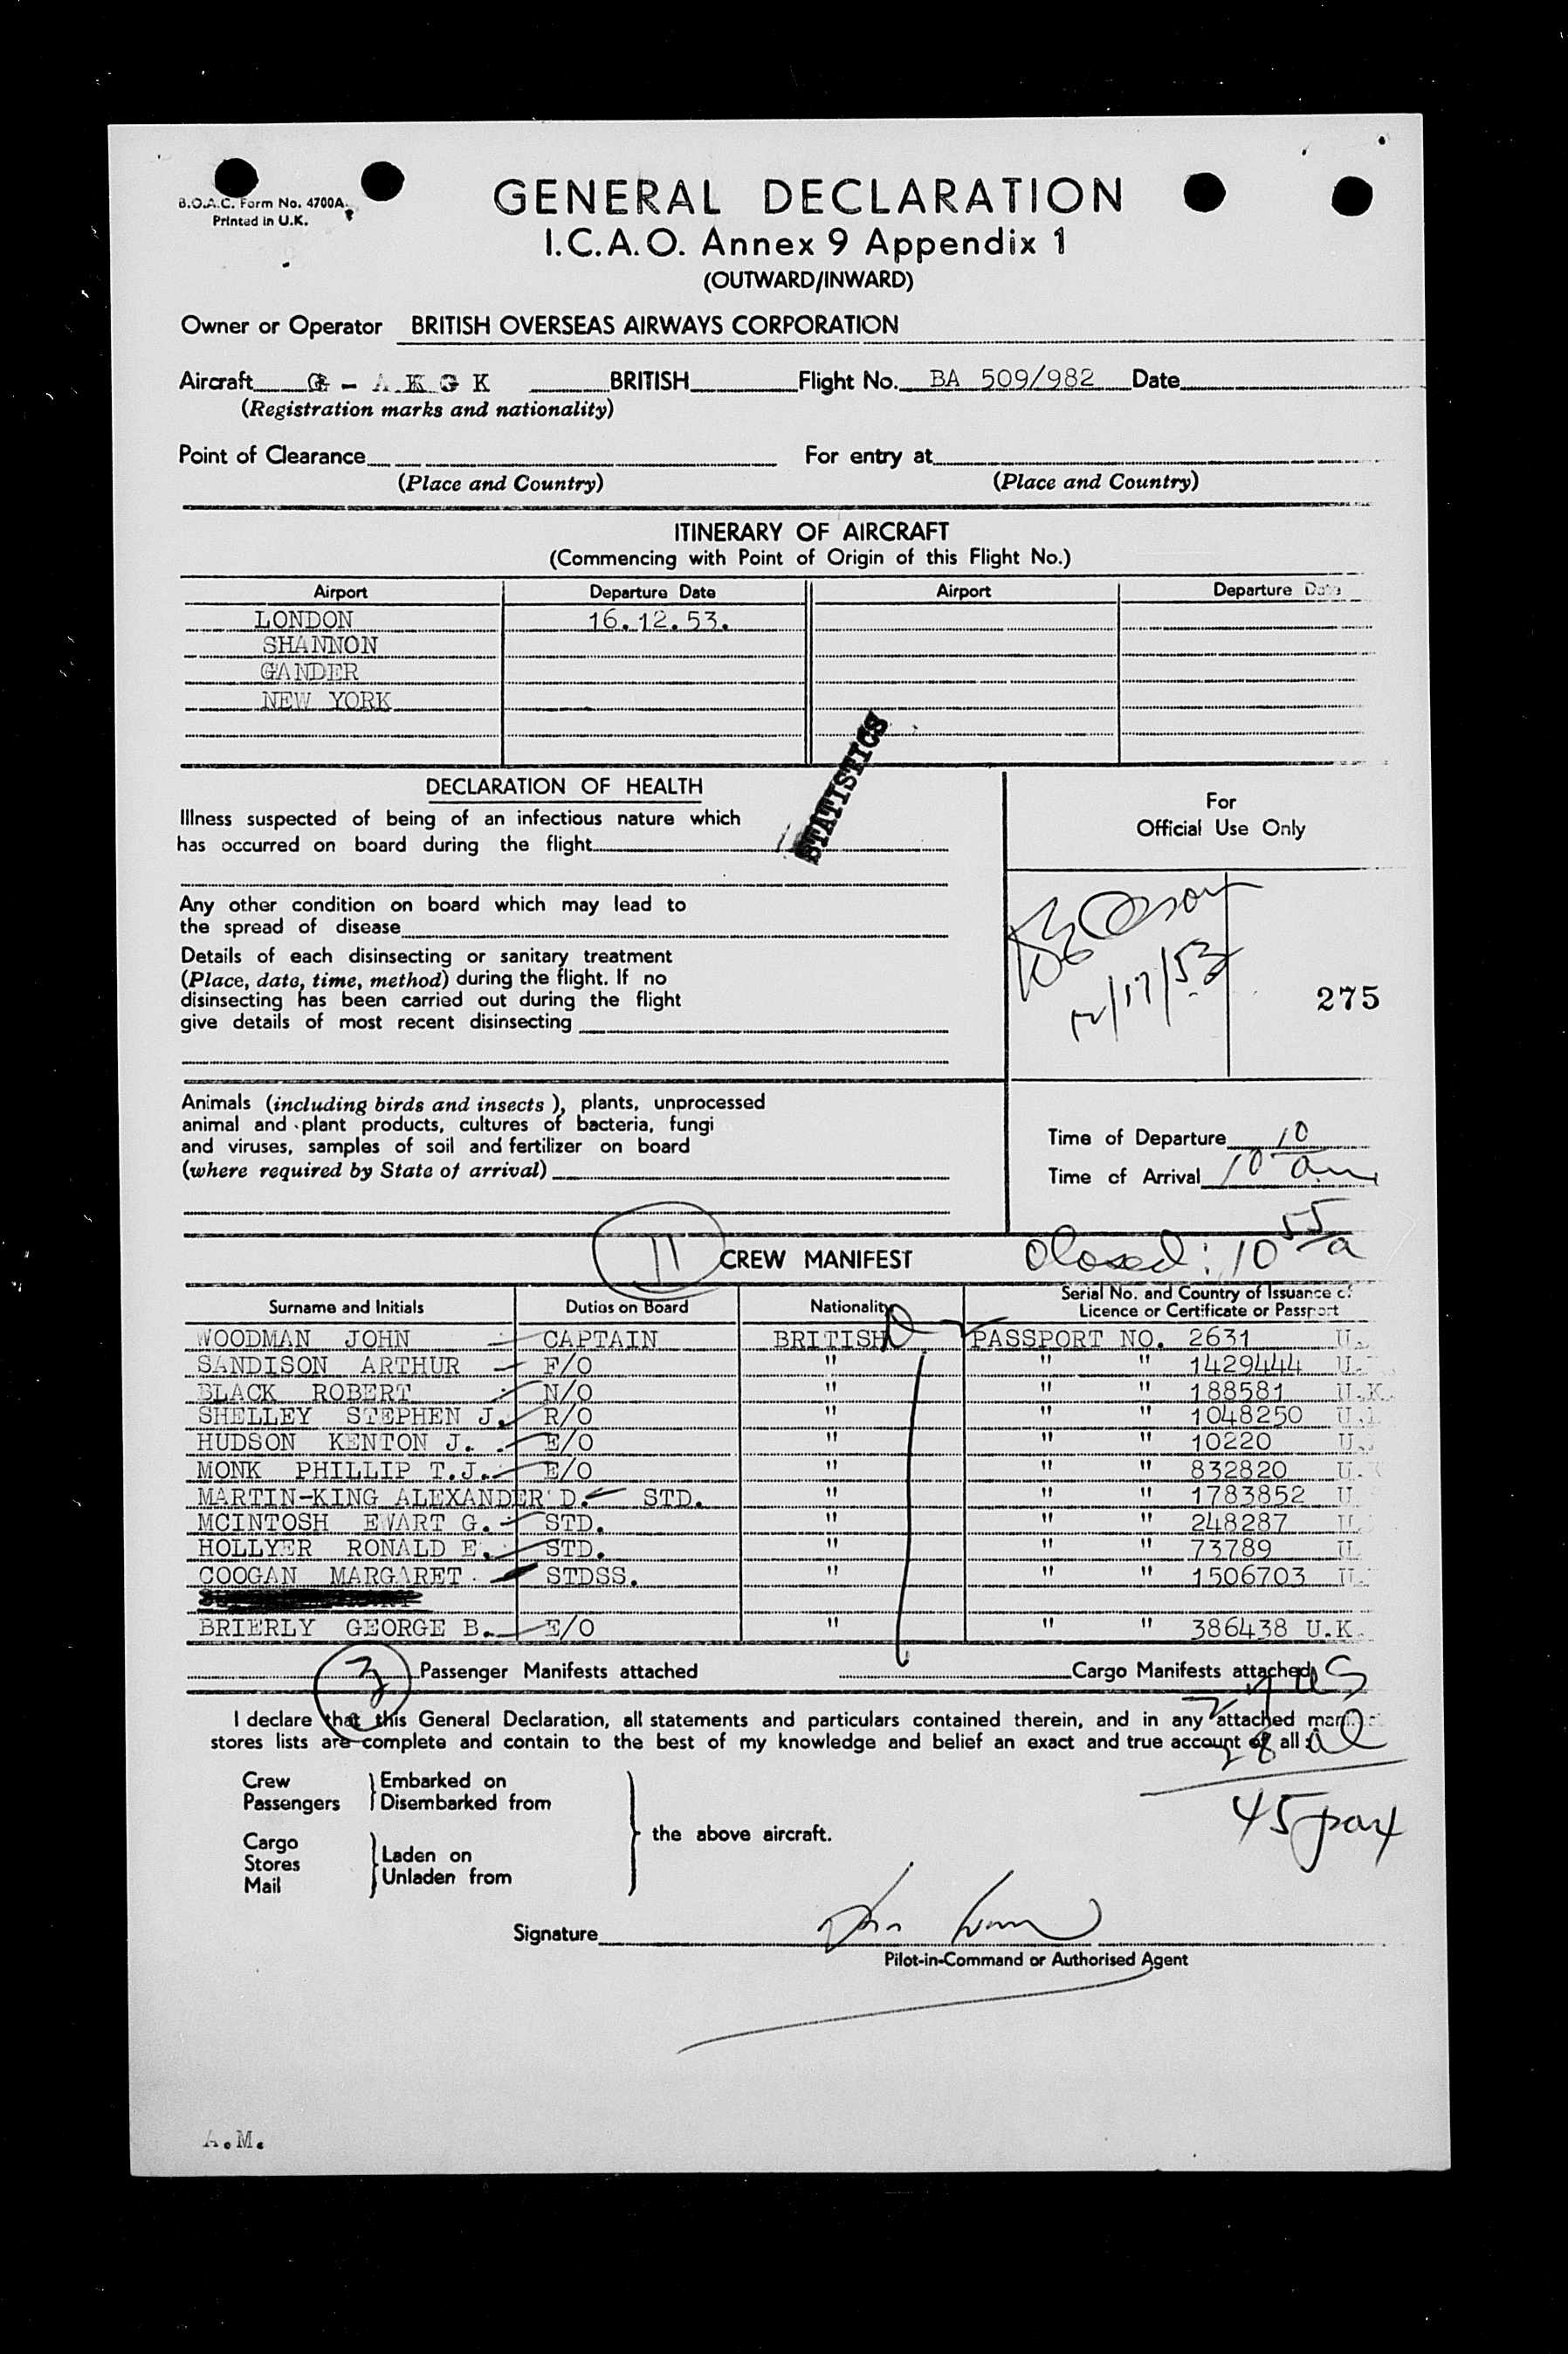 B.O.A.C. Form No. 4700A.
Printed in U.K.
GENERAL DECLARATION
I.C.A.O. Annex 9 Appendix 1
(OUTWARD/INWARD)
Owner or Operator BRITISH OVERSEAS AIRWAYS CORPORATION
Aircraft G - A K G K BRITISH Flight No. BA 509/982 Date
(Registration marks and nationality)
Point of Clearance For entry at
(Place and Country) (Place and Country)
ITINERARY OF AIRCRAFT
(Commencing with Point of Origin of this Flight No.)
Airport Departure Date Airport Departure Date
LONDON 16.12.53.
SHANNON
GANDER
NEW YORK
STATISTICS
DECLARATION OF HEALTH
Illness suspected of being of an infectious nature which
has occurred on board during the flight
Any other condition on board which may lead to
the spread of disease
Details of each disinsecting or sanitary treatment
(Place, date, time, method) during the flight. If no
disinsecting has been carried out during the flight
give details of most recent disinsecting
For
Official Use Only
12/17/53
275
Animals (including birds and insects), plants, unprocessed
animal and plant products, cultures of bacteria, fungi
and viruses, samples of soil and fertilizer on board
(where required by State of arrival)
Time of Departure 10
Time of Arrival 10 am
Closed: 10 55/a
11 CREW MANIFEST
Surname and Initials Duties on Board Nationality Serial No. and Country of Issuance of
Licence or Certificate or Passport
WOODMAN JOHN CAPTAIN BRITISH PASSPORT NO. 2631 U.
SANDISON ARTHUR F/O " " " 1429444 U.
BLACK ROBERT N/O " " " 188581 U.K.
SHELLEY STEPHEN J. R/O " " " 1048250 U.
HUDSON KENTON J. E/O " " " 10220 U.
MONK PHILLIP T.J. E/O " " " 832820 U.
MARTIN-KING ALEXANDER D. STD. " " " 1783852 U.
MCINTOSH EWART G. STD. " " " 248287 U.
HOLLYER RONALD E. STD. " " " 73789 U.
COOGAN MARGARET STDSS. " " " 1506703 U.
BRIERLY GEORGE B. E/O " " " 386438 U.K.
3 Passenger Manifests attached Cargo Manifests attached
I declare that this General Declaration, all statements and particulars contained therein, and in any attached
stores lists are complete and contain to the best of my knowledge and belief an exact and true account of all
45 pax
Crew
Passengers
Embarked on
Disembarked from
Cargo
Stores
Mail
Laden on
Unladen from
the above aircraft.
Signature
Pilot-in-Command or Authorised Agent
A.M.